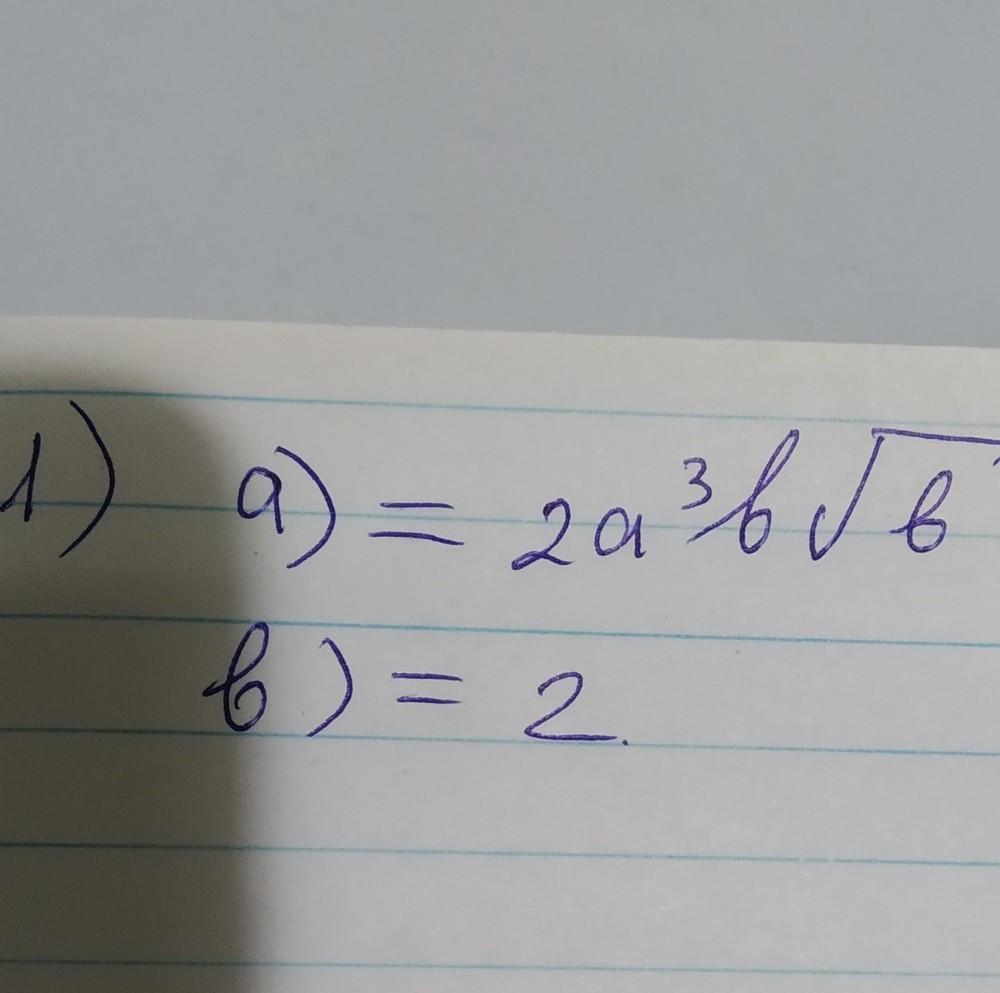 1) a) = 2a³b√b
b) = 2.